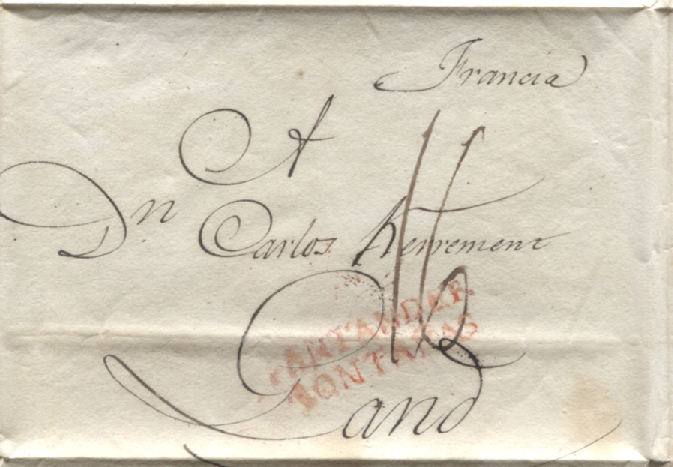 Francia
A
Dn Carlos Kerremenz
SANTANDER
MONTAÑAS
Gand